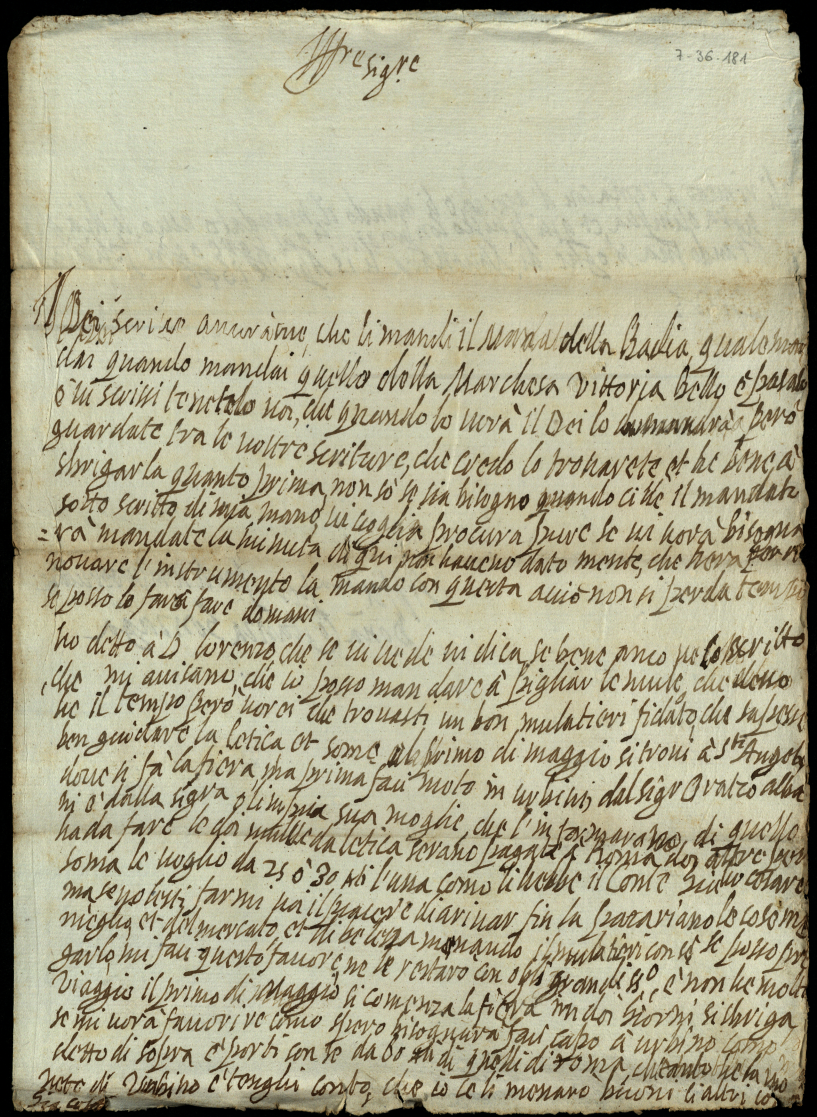 7-36-181
Ill.re Sig.re
Il Dei scrive ancora che li mandi il manda della Badia, quale man
dai quando mandai quello della Marchesa Vittoria Bello è passato
e vi scrissi tenetelo voi, che quando lo vorà il Dei lo domandrà però
guardate tra le vostre scriture, che credo lo trovarete et he bene à
sbrigarla quanto prima, non sò se sia bisogno quando ci he il mandato
sotto scritto di mia mano, vi voglia procura pure se vi vorà bisogna
rà mandate la minuta di qui non haveno dato mente, che hera
novare l'instrumento la mando con questa aciò non si perda tempo
se posso lo farò fare domani
ho detto à D. lorenzo che se vi vede vi dica, se bene anco
che mi avisano, che io posso mandare à pigliar le mule, che
he il tempo però vorei che trovasti un bon mulatieri fidato, che sapesse
ben guidare la letica et some al primo di maggio si trovi à S.to Angelo
dove si fà la fiera ma prima faci moto in urbino dal sig.r Oratio alba
ni e dalla sig.ra olimpia sua moglie, che l'informarano di quello
ha da fare le doi mule da letica serano pagate à Roma le altre per
soma le voglio da 25 ò 30 l'una como li hebbe il Conte
ma se potessi farmi il piacere di arivar fin la
meglio, et del mercato, et di belezza menando il mulatieri con sè se posso pre
garlo mi faci questo favore, ne le restarò con obligo grandiss.o, è non he molto
viaggio il primo di Maggio si comenza la fiera in doi giorni si sbriga
se mi vorà favorire como spero bisognarà faci capo à urbino como
detto di sopra è porti con se da 60 di quelli di roma,
nete di Urbino è tenghi conto, che io le li menarò buoni li altri